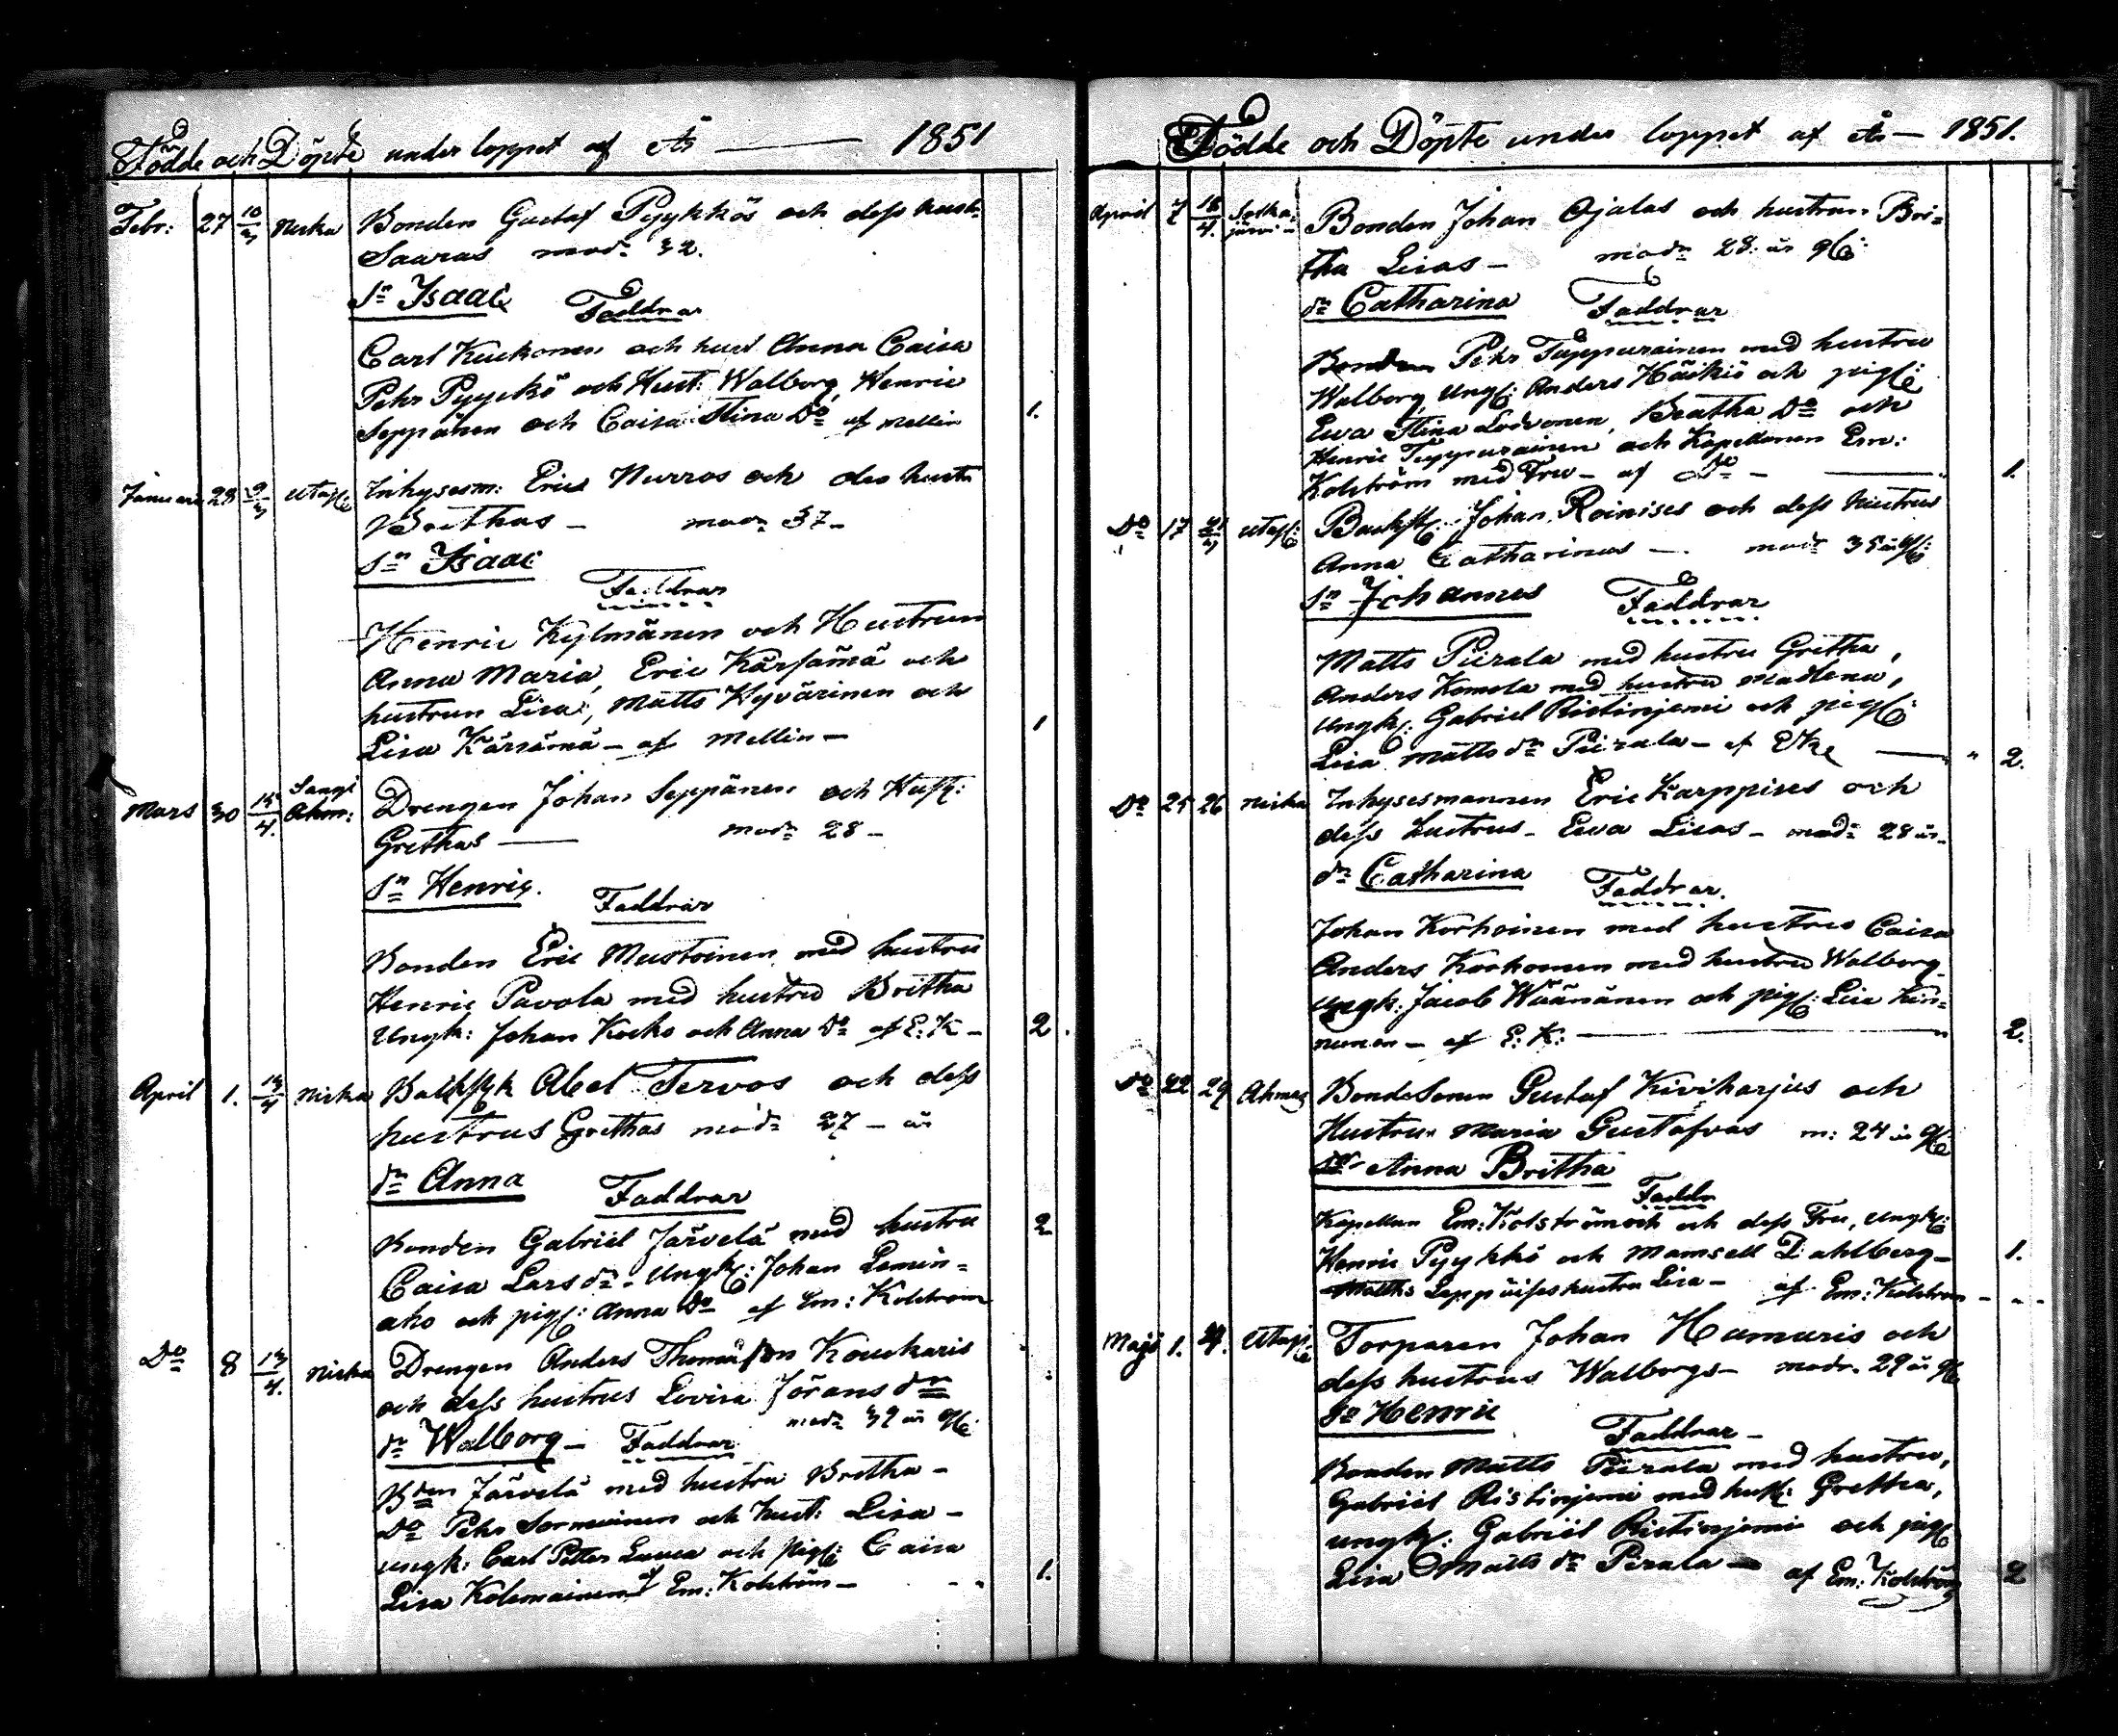 Födde och Döpte under loppet af År — 1851
Febr: 27 10/3 Niska Bonden Gustaf Pyykkös och dess hust:
Saaras mod: 32.
Sn Isaac Faddrar
Carl Kuckonen och hust Anna Caisa
Pehr Pyyckö och Hust: Walborg, Henric
Seppänen och Caisa Stina Do af Mellin 1.
Januari 28 9/3 Utaj: Inhysesm: Eric Nurros och des hustr
Brithas — mod: 37 —
Sn Isaac
Faddrar
Henric Kylmänen och Hustrun
Anna Maria, Eric Kärsämä och
hustrun Lisa, Matts Hyvärinen och
Lisa Kärsämä — af Mellin — 1
Mars 30 14/4. Sangi Ahm: Drengen Johan Seppänen och Hust:
Grethas — mod: 28 —
Sn Henric.
Faddrar
Bonden Eric Mustoinen med hustru
Henric Pavola med hustru Britha
Ungk: Johan Kocko och Anna Do af E. K — 2.
April 1. 13/4 Niska Backstk Abel Tervos och dess
hustrus Grethas mod: 27 — år
dr Anna
Faddrar
Bonden Gabriel Järvelä med hustru 2
Caisa Lars dr. Ungk: Johan Lemin=
aho och pig: Anna Do af Em: Kolström
Do 8 13/4. Niska Drengen Anders Thomasson Kouckaris
och dess hustrus Lovisa Jörans dr
mod: 39 år
dr Walborg — Faddrar
Bden Järvelä med hustru Britha —
Do Pehr Sormuinen och hust: Lisa —
ungk: Carl Petter and pig: Caisa
Lisa Kolemainen af Em: Kolström — 1.
Födde och Döpte under loppet af År — 1851.
April 7 16/4. Bonden Johan Ojalas och hustrun Bri=
tha Lisas — mod: 28 år
dr Catharina Faddrar
Bonden Pehr Tuppurainen med hustru
Walborg, Ungk: Anders Häikiö och pig:
Ewa Stina Lodvonen, Beatha Do och
Henric Tuppurainen och Kapellanen Em:
Kolström med Fru — af Do — 1.
Do 17 21/4 Utaj: Backst: Johan Roinises och dess hustrus
Anna Catharinas — mod: 35 år
Sn Johannes Faddrar
Matts Pirala med hustru Gretha,
Anders Komola med hustru Madlena,
ungk: Gabriel Ristinjemi och pig:
Lisa Matts dr Pirala — af 2.
Do 25 26 Niska Inhysesmannen Eric Karppises och
dess hustrus — Ewa Lisas — mod: 28 år —
dr Catharina Faddrar.
Johan Korhoinen med hustru Caisa
Anders Korhonen med hustru Walborg
ungk: Jacob Wäänänen och pig: Lisa Kin=
nunen — af E: K: 2.
Do 22 29 Ahmas Bondesonen Gustaf Kivikarjus och
Hustrun Maria Gustafvas m: 24 år
dr Anna Britha
Faddr
Kapellan Em: Kolström och dess Fru, Ungk:
Henric Pyykkö och Mamsell Dahlberg — 1.
Matths Leppäises hustru Lisa — af Em: Kolström —
Maji 1. 4. Utaj: Torparen Johan Hamaris och
dess hustrus Walborgs — modr. 29 år
Sn Henric
Faddrar —
Bonden Matts Pirala med hustru,
Gabriel Ristinjemi med hust: Gretha,
ungk: Gabriel Ristinjemi och pig
Lisa Matts dr Pirala — af Em: Kolström 2